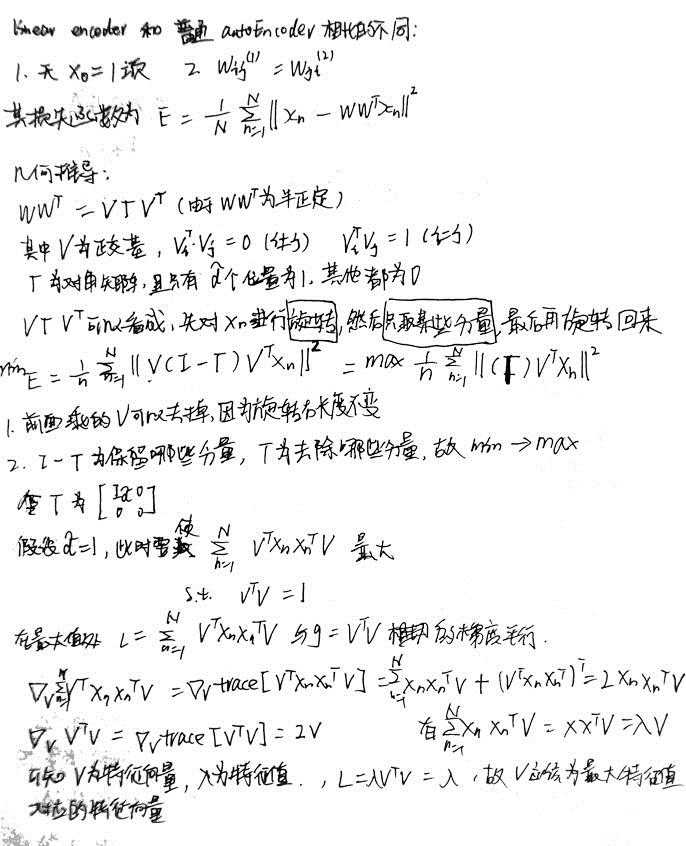 linear encoder 和 普通 autoEncoder 相比的不同:
1. 无 x₀=1 项  2. Wij⁽¹⁾ = Wji⁽²⁾
其损失函数为 E = 1/N Σ_{n=1}^{N} ||xn − WWᵀxn||²
几何推导:
WWᵀ = VΓVᵀ (由于 WWᵀ为半正定)
其中 V为正交基, Viᵀ·Vj = 0 (i≠j)  ViᵀVj = 1 (i=j)
Γ 为对角矩阵, 且只有 d̃个位置为1, 其他都为0
VΓVᵀ可以看成, 先对 xn 进行旋转, 然后只取某些分量, 最后再旋转回来
min E = 1/n Σ_{n=1}^{N} ||V(I−Γ)Vᵀxn||² = max 1/n Σ_{n=1}^{N} ||(Γ)Vᵀxn||²
1. 前面乘的V可以去掉, 因为旋转后长度不变
2. I−Γ 为保留哪些分量, Γ为去除哪些分量, 故 min → max
令 Γ 为 [Id̃ 0 0 0]
假设 d̃=1, 此时要使 Σ_{n=1}^{N} VᵀxnxnᵀV 最大
s.t. VᵀV = 1
在最大值处 L = Σ_{n=1}^{N} VᵀxnxnᵀV 与 g = VᵀV 的梯度平行.
∇v Σ_{n=1}^{N} VᵀxnxnᵀV = ∇v trace[VᵀxnxnᵀV] = Σ_{n=1}^{N} xnxnᵀV + (Vᵀxnxnᵀ)ᵀ = 2xnxnᵀV
∇v VᵀV = ∇v trace[VᵀV] = 2V  有 Σ_{n=1}^{N} xnxnᵀV = XXᵀV = λV
可知 V为特征向量, λ为特征值. , L=λVᵀV = λ, 故 V应该为最大特征值
对应的特征向量